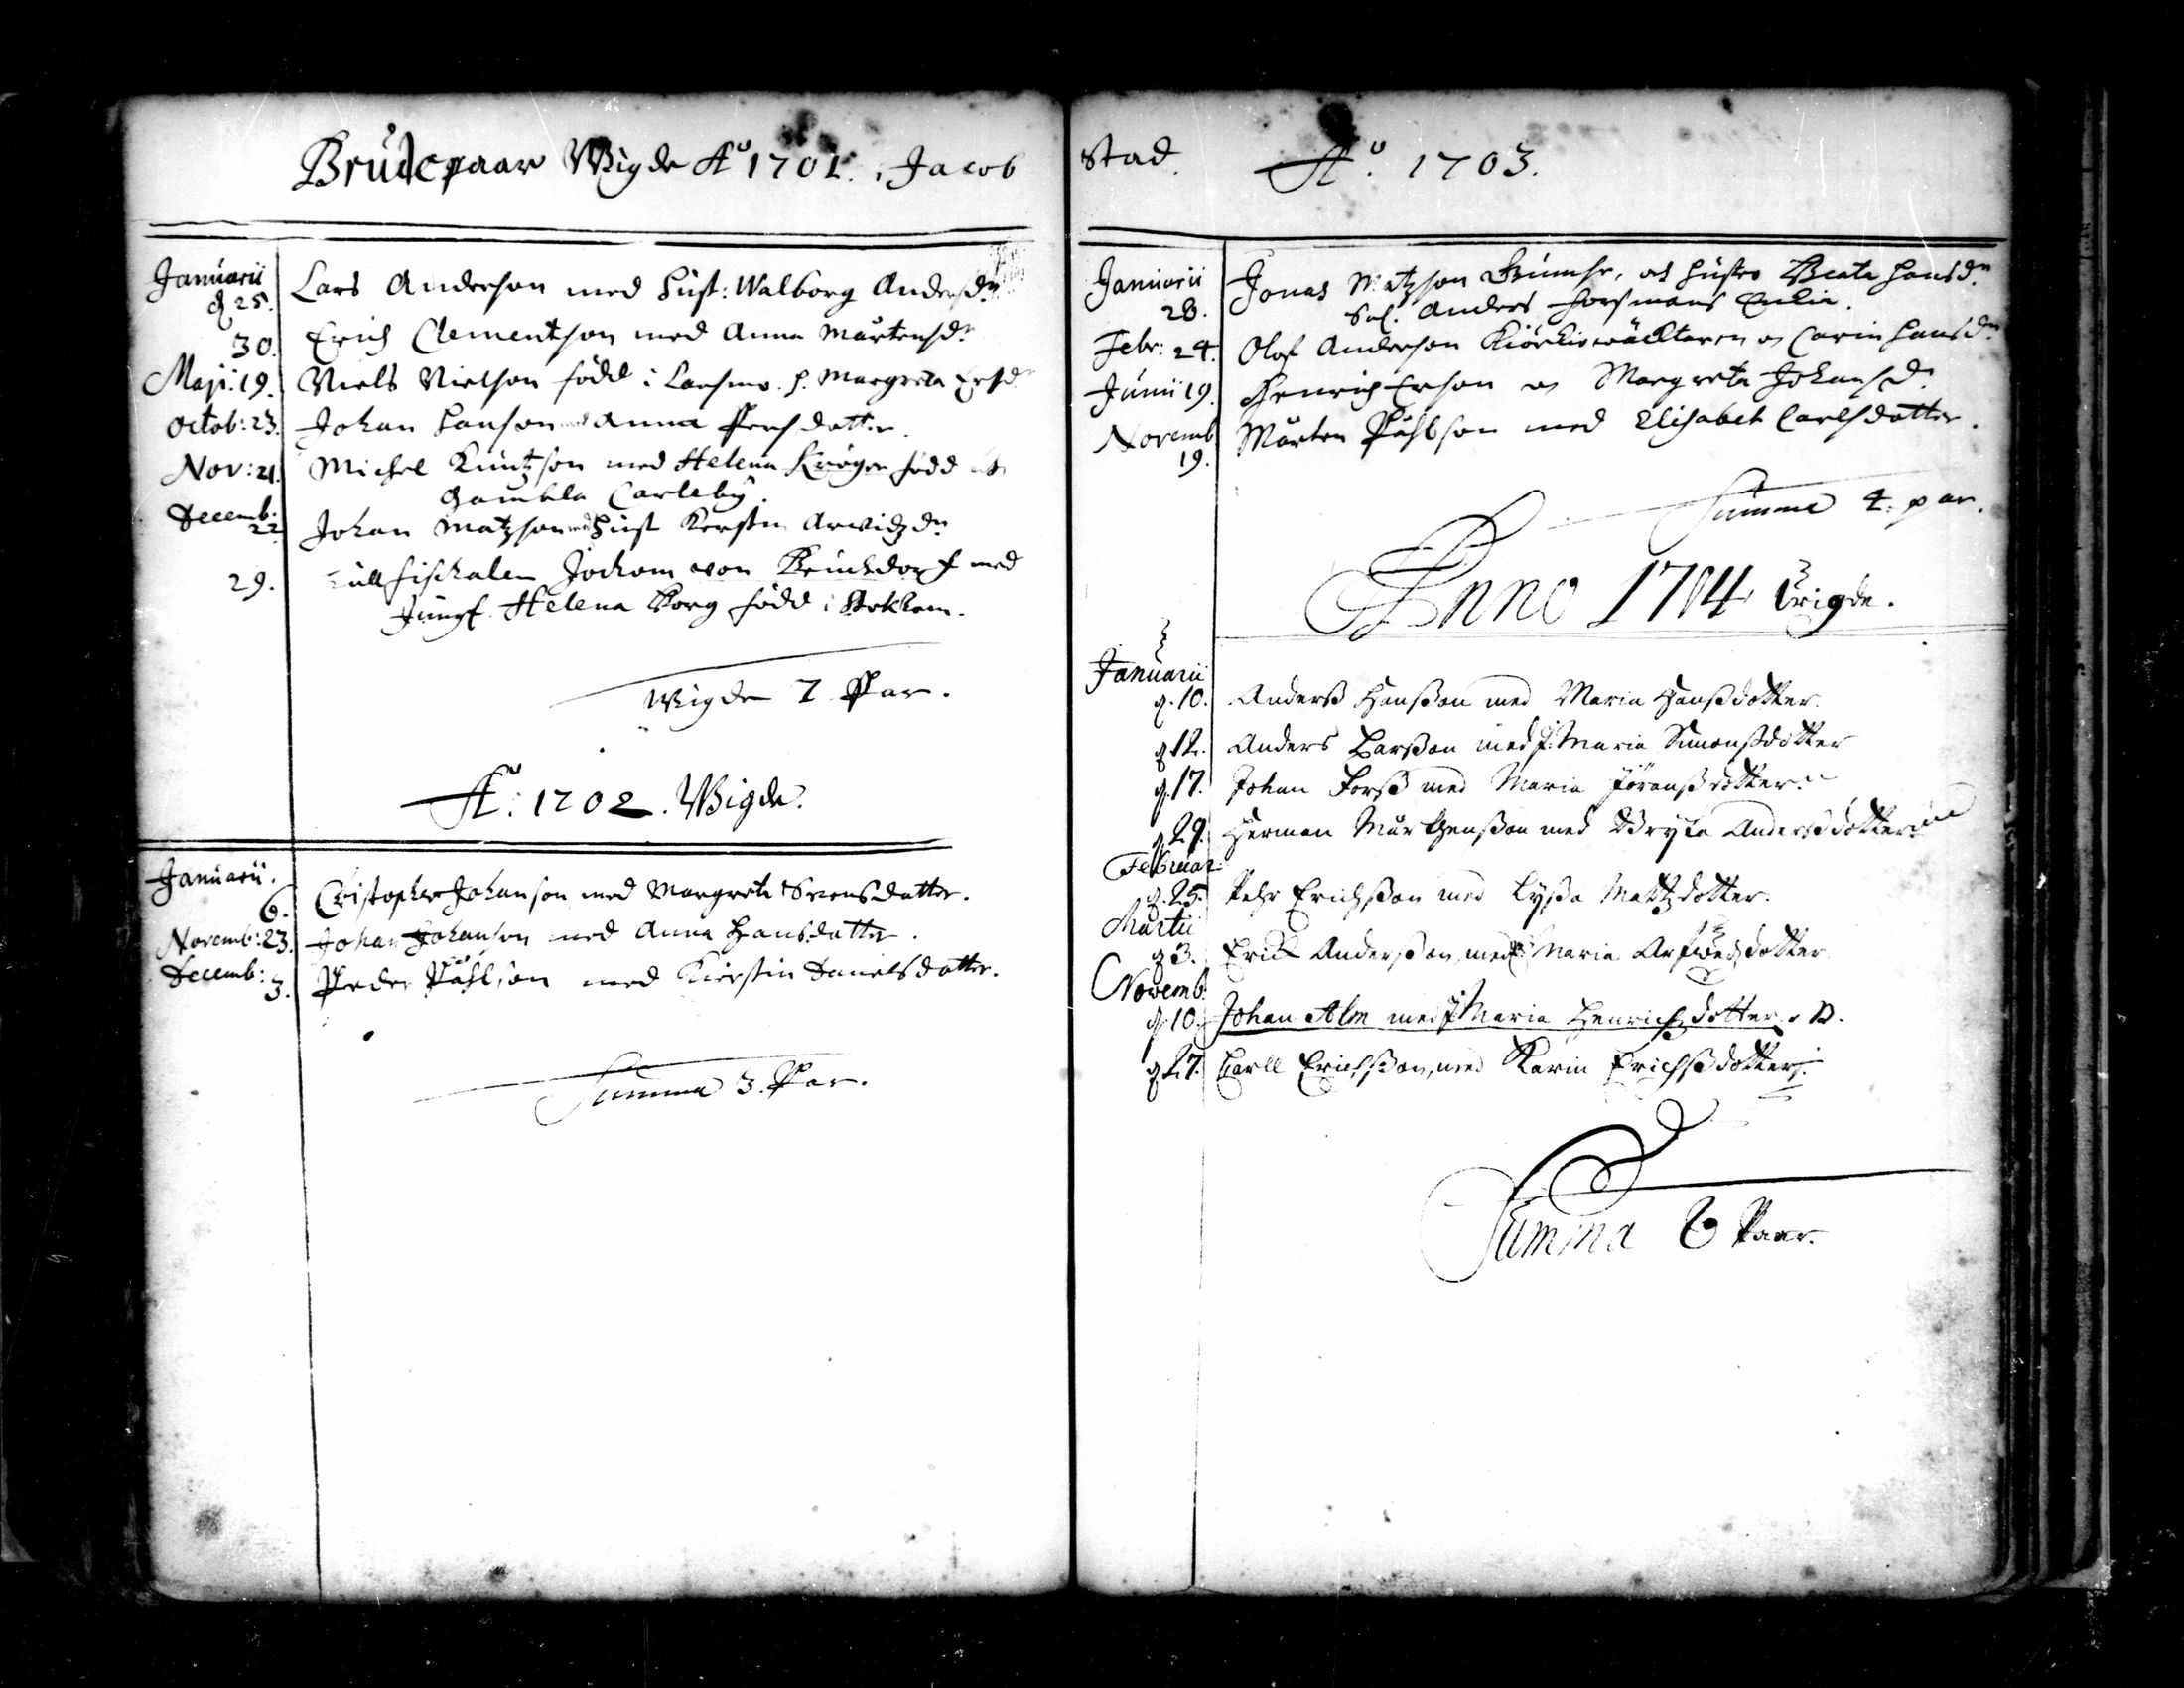 Brudepaar Wigde Aº 1701. i Jacob
Januarii
d 25. Lars Anderson med Hust: Walborg Andersdr
30. Erich Clementson med Anna Mårtensdr
Maji: 19. Niels Nielson född i Larsmo. h. Margreta Ersd
Octob: 23. Johan Hanson med Anna Persdatter.
Nov: 21. Michel Kuntzson med Helena Kröger född
Gambla Carleby.
Decemb: 22 Johan Matzson med Hust Kerstin Arwidzdr
29. Tullfischalen Jochom von med
Jungf. Helena Borg född i Stokkom.
Wigde 7 Par.
Aº: 1702. Wigde.
Januarii.
6. Christopher Johanson med Margreta Svensdatter.
Novemb: 23. Johan Johanson med Anna Hansdatter.
Decemb: 3. Peder Påhlson med Kierstin Danielsdatter.
Summa 3. Par.
Stad. Aº. 1703.
Januarii
28. Jonas Matzson och hustro Beata Hansdr
Sal. Anders Forsmans Enkia.
Febr: 24. Olof Anderson Kiörkiowächtaren och Carin Hansdr
Junii 19. Henrich Erson och Margreta Johansdr
Novemb 19. Mårten Påhlson med Elisabet Carlsdatter.
Summa 4. par.
Anno 1704 wigde.
Januarii
d. 10. Anderß Hanßon med Maria Hanßdotter.
d 12. Anders Larßon med H: Maria Simonßdotter
d. 17. Johan Forß med Maria Jöranßdotter
d. 29. Herman Mårthenßon med Bryta Anderßdotter
Februar:
d. 25. Pehr Erichßon med Lyßa Mattzdotter.
Martii
d 3. Erick Anderßon med H: Maria Arfwedzdotter
Novemb:
d. 10. Johan Alm med J Maria Henrichzdotter. D.
d 27. Carll Erichßon, med Karin Erichßdotter.
Summa 8 Paar.